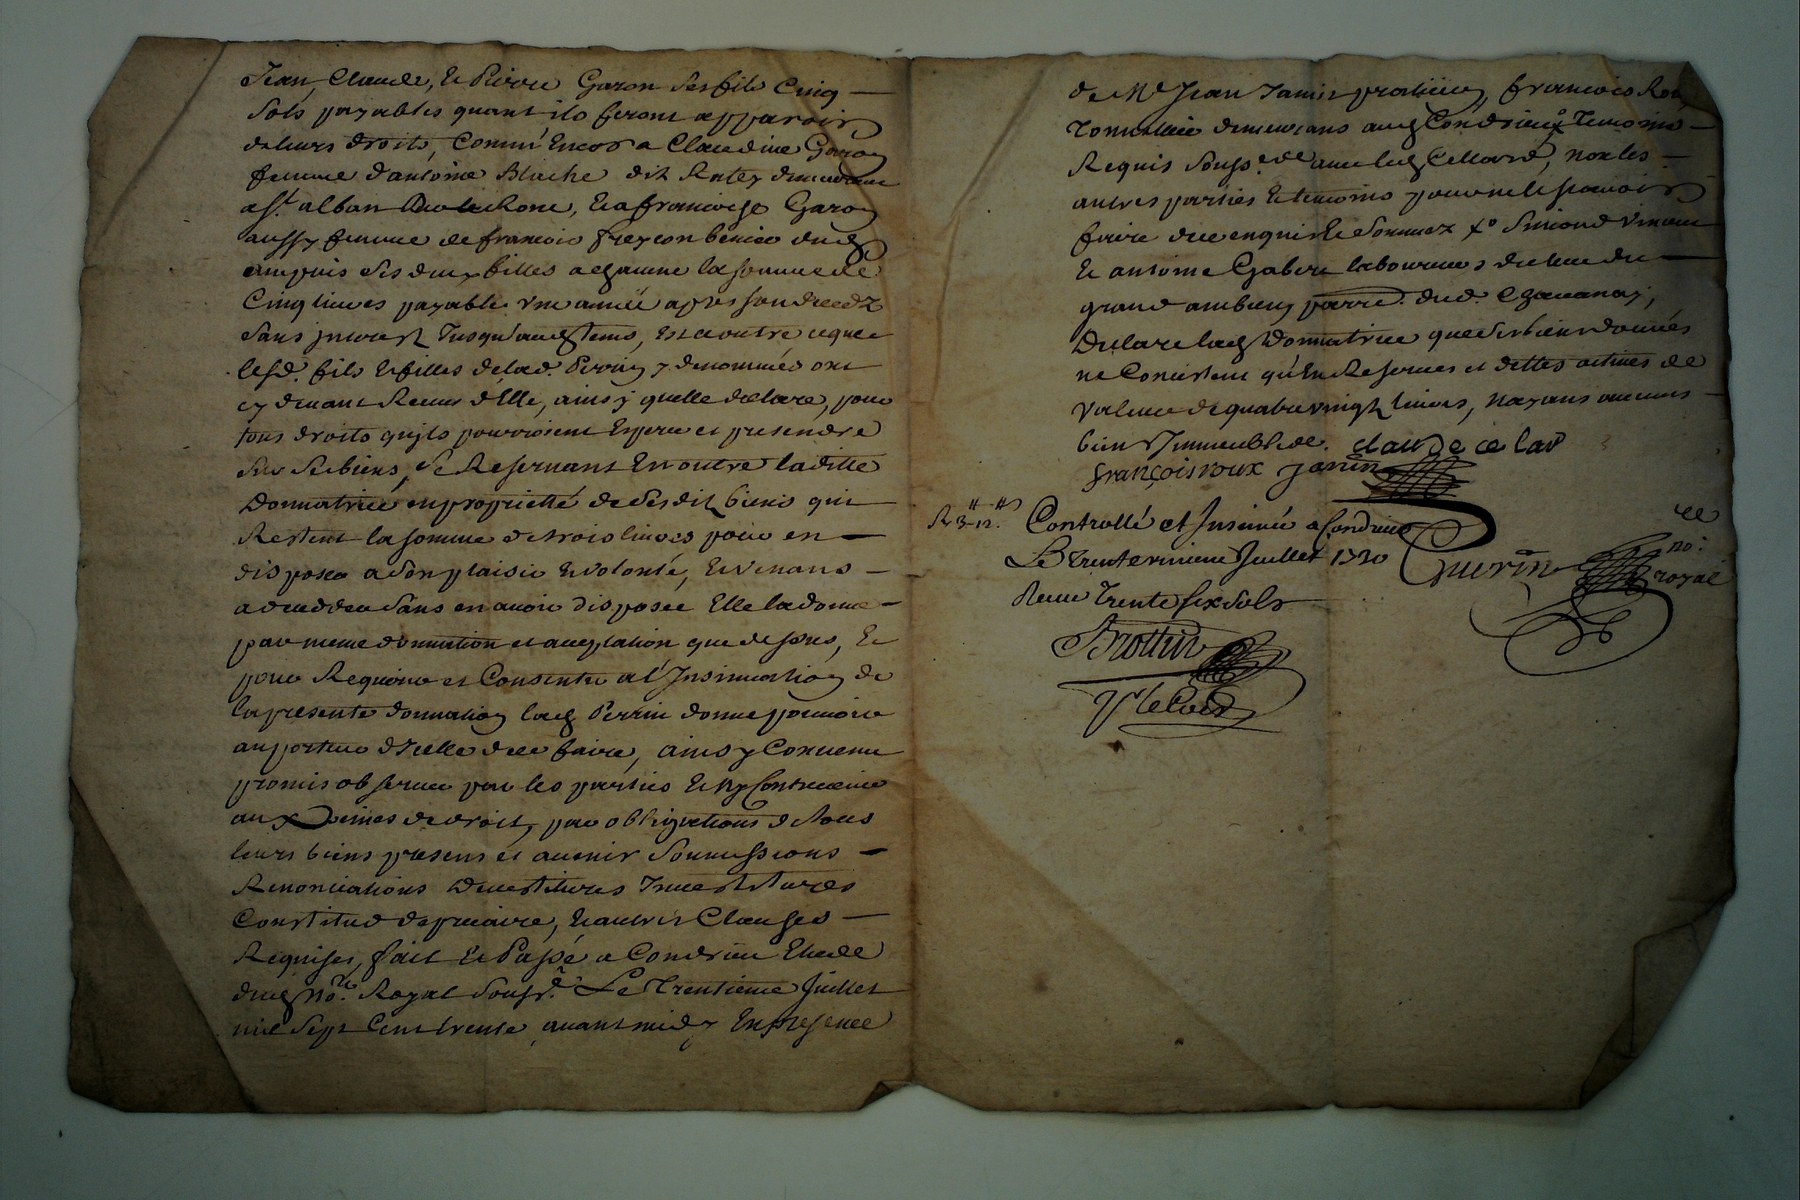 Jean, Claude, et Pierre Garon ses fils Cinq
sols payables quant ilo feront apparoir
de leurs droits, Comm' Encor a Claudine Garon
femme d'antoine Blache dit Ratey demeurant
a St. alban Rone, et a francoise Garon
aussy femme de francois freycon
ses deux filles a chacune la somme de
Cinq livres payable une année apres son decedz
sans jnterest Jusqu'audt tems, Et ce outre ce que
lesd. fils et filles de lad. Perrin y denommés ont
cy devant Receu d'Elle, ainsy quelle declare, pour
tous droits qu'jls pourroient Esperer et pretendre
sur ses biens, se Reservant En outre laditte
Donnatrice en proprietté de sesdit biens qui
Restent la somme de trois livres pour en
disposer a son plaisir et volonté, et venans
a deceder sans en avoir disposée Elle la donne
par meme donnation et acceptation que dessus, Et
pour Requerir et Consentir a l'Jnsinuation de
la presente donnation lad Perrin donne pouvoir
au porteur d'jcelle de ce faire, ainsy Convenu
promis observer par les parties et n'y Contrevenir
aux Peines de droit, par obligations de tous
leurs biens presens et avenir soumissions
Renonciations Devestitures Jnvestitures
Constitut de precaire, et autres Clauses
Requises, fait et Passé a Condrieu Etude
dud No.re Royal souss.é Le Trentieme Juillet
mil sept Cent trente, avant midy En presence
de Me Jean Janin praticien, francois Roux
Tonnellier demeurans aud Condrieu Temoins
Requis souss.és avec led Cellard, non les
autres parties et temoins pour ne le scavoir
faire de ce enquis et sommez Simond Vincent
Et antoine Gabert laboureurs du lieu du
grand ambuen parr.e dud. Chavanay,
Declare lad Donnatrice que ses biens donnés
ne Consistent qu'En Reserves et dettes actives de
valleur de quatre vingt livres, Nayans aucuns
bien Jmmeuble. claude celar
françois roux Janin
R 3-12. Controllé et Jnsinué a Condrieu
Le Trente unieme Juillet 1730
Receu Trente six sols
Guerin no: royal
Brottin